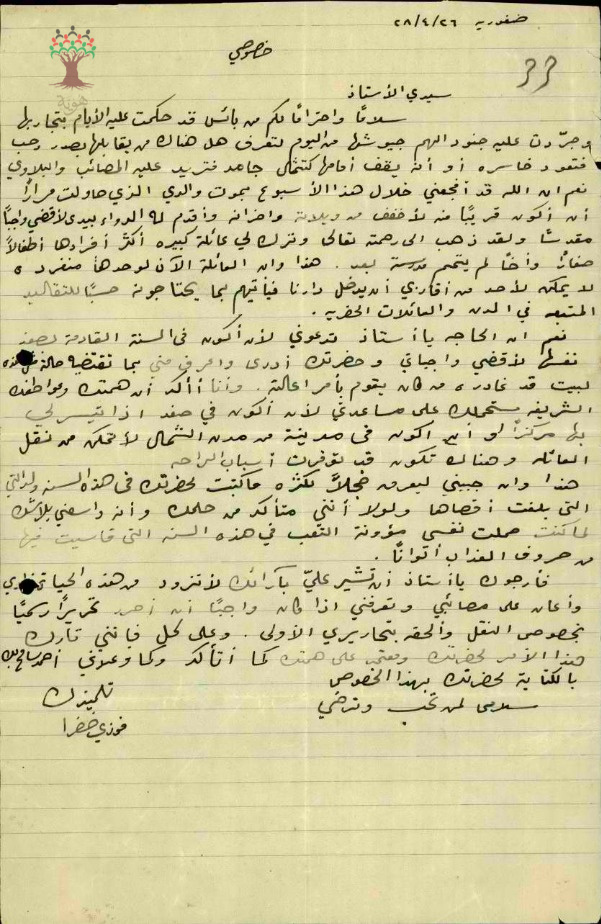 صفورية ٢٦/٤/٢٨
خصوصي
هوية
سيدي الأستاذ
سلامًا واحترامًا لكم من بائس قد حكمت عليه الأيام بتجاربها
وجرّدت عليه جنود الهم جيوشها من اليوم لتعرف هل هناك من يقابلها بصدر رحب
فتعود خاسره أو أنه يقف أمامها كتمثال جامد فتزيد عليه المصائب والبلاوي
نعم ان الله قد أفجعني خلال هذا الأسبوع بموت والدي الذي حاولت مرارًا
أن أكون قريبًا منه لأخفف من ويلاته واحزانه وأقدم له الدواء بيدي لأقضي واجبًا
مقدسًا ولقد ذهب الى رحمته تعالى وترك لي عائلة كبيره أكثر أفرادها أطفالاً
صغارًا وأخًا لم يتمم مدرسته بعد. هذا وان العائلة الآن لوحدها منفرده
لا يمكن لأحد من أقاربي أن يدخل دارنا فيأتيهم بما يحتاجونه حسبًا للتقاليد
المتبعه في المدن والعائلات الحضريه.
نعم ان الحاجه يا أستاذ تدعوني لأن أكون في السنة القادمة لصفد
نفسها لأقضي واجباتي وحضرتك أدرى واعرف مني بما تقتضيه حالة هذه
البيت قد غادره من كان يقوم بأمر اعالته. وأنا أأكد أن همتك وعواطفك
الشريفه ستحملك على مساعدتي لأن أكون في صفد اذا تيسر لي
بها مركزًا او أن اكون في مدينة من مدن الشمال لأتمكن من نقل
العائله وهناك تكون قد توفرت أسباب الراحه
هذا وان جبيني ليعرق خجلاً لكثره ما كتبت لحضرتك في هذه السنه ولذاتي
التي بلغت أقصاها ولولا أنني متأكد من حلمك وأنه واسعني بلا شك
لما كنت حملت نفسي مؤونة التعب في هذه السنه التي قاسيت فيها
من صروف العذاب ألوانًا.
فأرجوك يا أستاذ أن تشير عليّ بآرائك لأتزود من هذه الحياة
وأعان على مصائبي وتعرفني اذا كان واجبًا أن أحرر تحريرًا رسميًا
بخصوص النقل والحقه بتحاريري الأولى. وعلى كل فإنني تارك
هذا الأمر لحضرتك ومعتمد على همتك كما أتأكد وكما وعدوني أحمد سامح بك
بالكتابة لحضرتك بهذا الخصوص
سلامي لمن تحب وترضى
تلميذك
فوزي خضرا